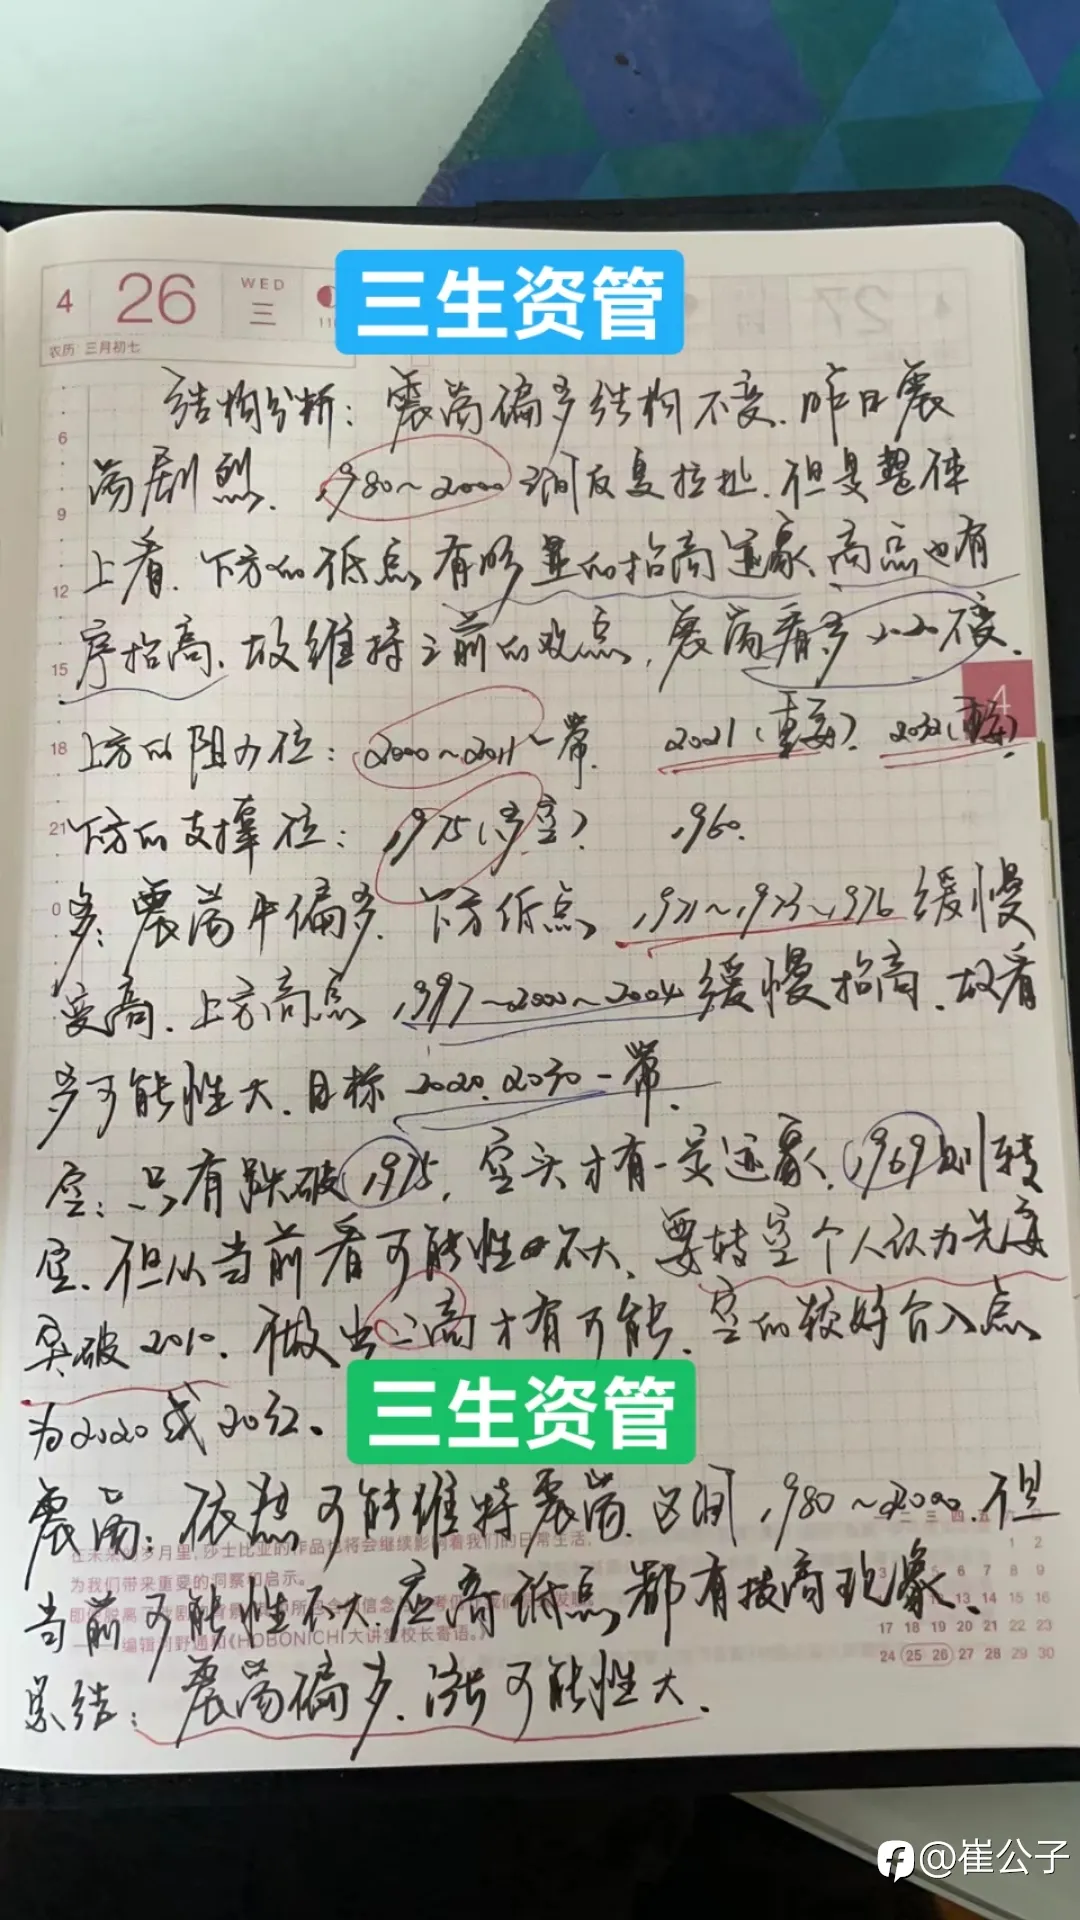 三生资管
4 26 WED 三
农历 三月初七
结构分析：震荡偏多结构不变，昨日震
荡剧烈，1980～2000之间反复拉扯，但是整体
上看，下方的低点有明显的抬高迹象，高点也有
序抬高，故维持之前的观点，震荡看多2020不变。
上方的阻力位：2000～2011一带 2021（重要） 2032（重要）
下方的支撑位：1975（多空） 1960
多：震荡中偏多，下方低点1971～1973～1976缓慢
变高，上方高点1997～2000～2004缓慢抬高，故看
多可能性大，目标2020、2030一带。
空：只有跌破1975，空头才有一定迹象，1969则转
空，但从当前看可能性不大，要转空个人认为先要
突破2010，做出二高才有可能，空的较好介入点
为2020或2032。
三生资管
震荡：依然可能维持震荡，区间1980～2000，但
当前可能性不大，应高低点都有拔高现象。
总结：震荡偏多，涨可能性大。
在未来的岁月里，莎士比亚的作品也将会继续影响着我们的日常生活，
为我们带来重要的洞察和启示。
编辑河野通和《HOBONICHI大讲堂校长寄语。》
17 18 19 20 21 22 23
24 25 26 27 28 29 30
@崔公子